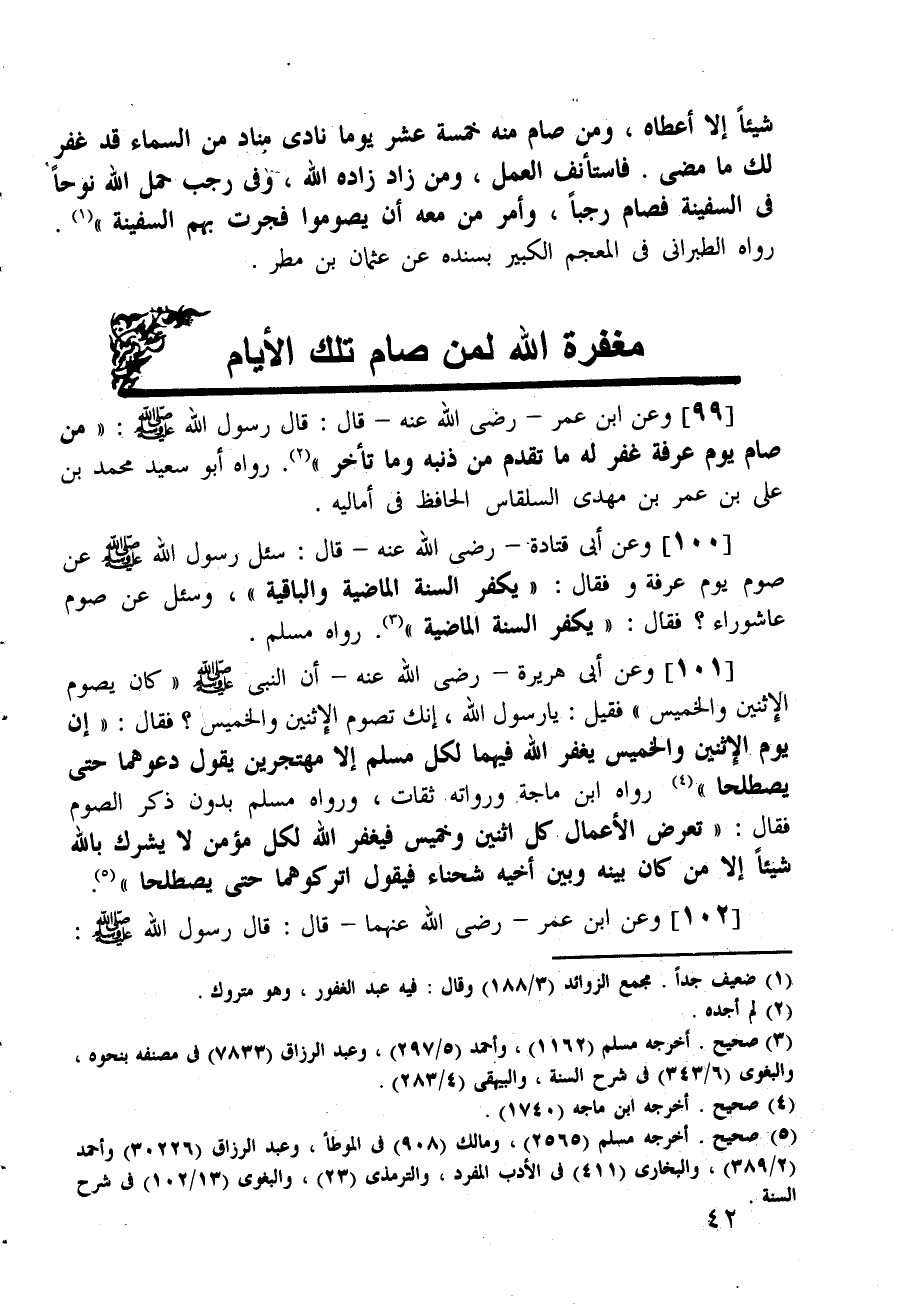 شيئاً إلا أعطاه ، ومن صام منه خمسة عشر يوما نادى مناد من السماء قد غفر
لك ما مضى . فاستأنف العمل ، ومن زاد زاده الله ، وفى رجب حمل الله نوحاً
فى السفينة فصام رجباً ، وأمر من معه أن يصوموا فجرت بهم السفينة »(١) .
رواه الطبرانى فى المعجم الكبير بسنده عن عثمان بن مطر .
مغفرة الله لمن صام تلك الأيام
[٩٩] وعن ابن عمر – رضى الله عنه – قال : قال رسول الله ﷺ : « من
صام يوم عرفة غفر له ما تقدم من ذنبه وما تأخر »(٢). رواه أبو سعيد محمد بن
على بن عمر بن مهدى السلقاس الحافظ فى أماليه .
[١٠٠] وعن أبى قتادة – رضى الله عنه – قال : سئل رسول الله ﷺ عن
صوم يوم عرفة و فقال : « يكفر السنة الماضية والباقية » ، وسئل عن صوم
عاشوراء ؟ فقال : « يكفر السنة الماضية »(٣). رواه مسلم .
[١٠١] وعن أبى هريرة – رضى الله عنه – أن النبى ﷺ « كان يصوم
الإثنين والخميس » فقيل : يارسول الله ، إنك تصوم الإثنين والخميس ؟ فقال : « إن
يوم الإثنين والخميس يغفر الله فيهما لكل مسلم إلا مهتجرين يقول دعوهما حتى
يصطلحا »(٤) رواه ابن ماجة ورواته ثقات ، ورواه مسلم بدون ذكر الصوم
فقال : « تعرض الأعمال كل اثنين وخميس فيغفر الله لكل مؤمن لا يشرك بالله
شيئاً إلا من كان بينه وبين أخيه شحناء فيقول اتركوهما حتى يصطلحا »(٥).
[١٠٢] وعن ابن عمر – رضى الله عنهما – قال : قال رسول الله ﷺ :
(١) ضعيف جداً . مجمع الزوائد (١٨٨/٣) وقال : فيه عبد الغفور ، وهو متروك .
(٢) لم أجده .
(٣) صحيح . أخرجه مسلم (١١٦٢) ، وأحمد (٢٩٧/٥) ، وعبد الرزاق (٧٨٣٣) فى مصنفه بنحوه ،
والبغوى (٣٤٣/٦) فى شرح السنة ، والبيهقى (٢٨٣/٤) .
(٤) صحيح . أخرجه ابن ماجه (١٧٤٠) .
(٥) صحيح . أخرجه مسلم (٢٥٦٥) ، ومالك (٩٠٨) فى الموطأ ، وعبد الرزاق (٣٠٢٢٦) وأحمد
(٣٨٩/٢) ، والبخارى (٤١١) فى الأدب المفرد ، والترمذى (٢٣) ، والبغوى (١٠٢/١٣) فى شرح
السنة .
٤٢